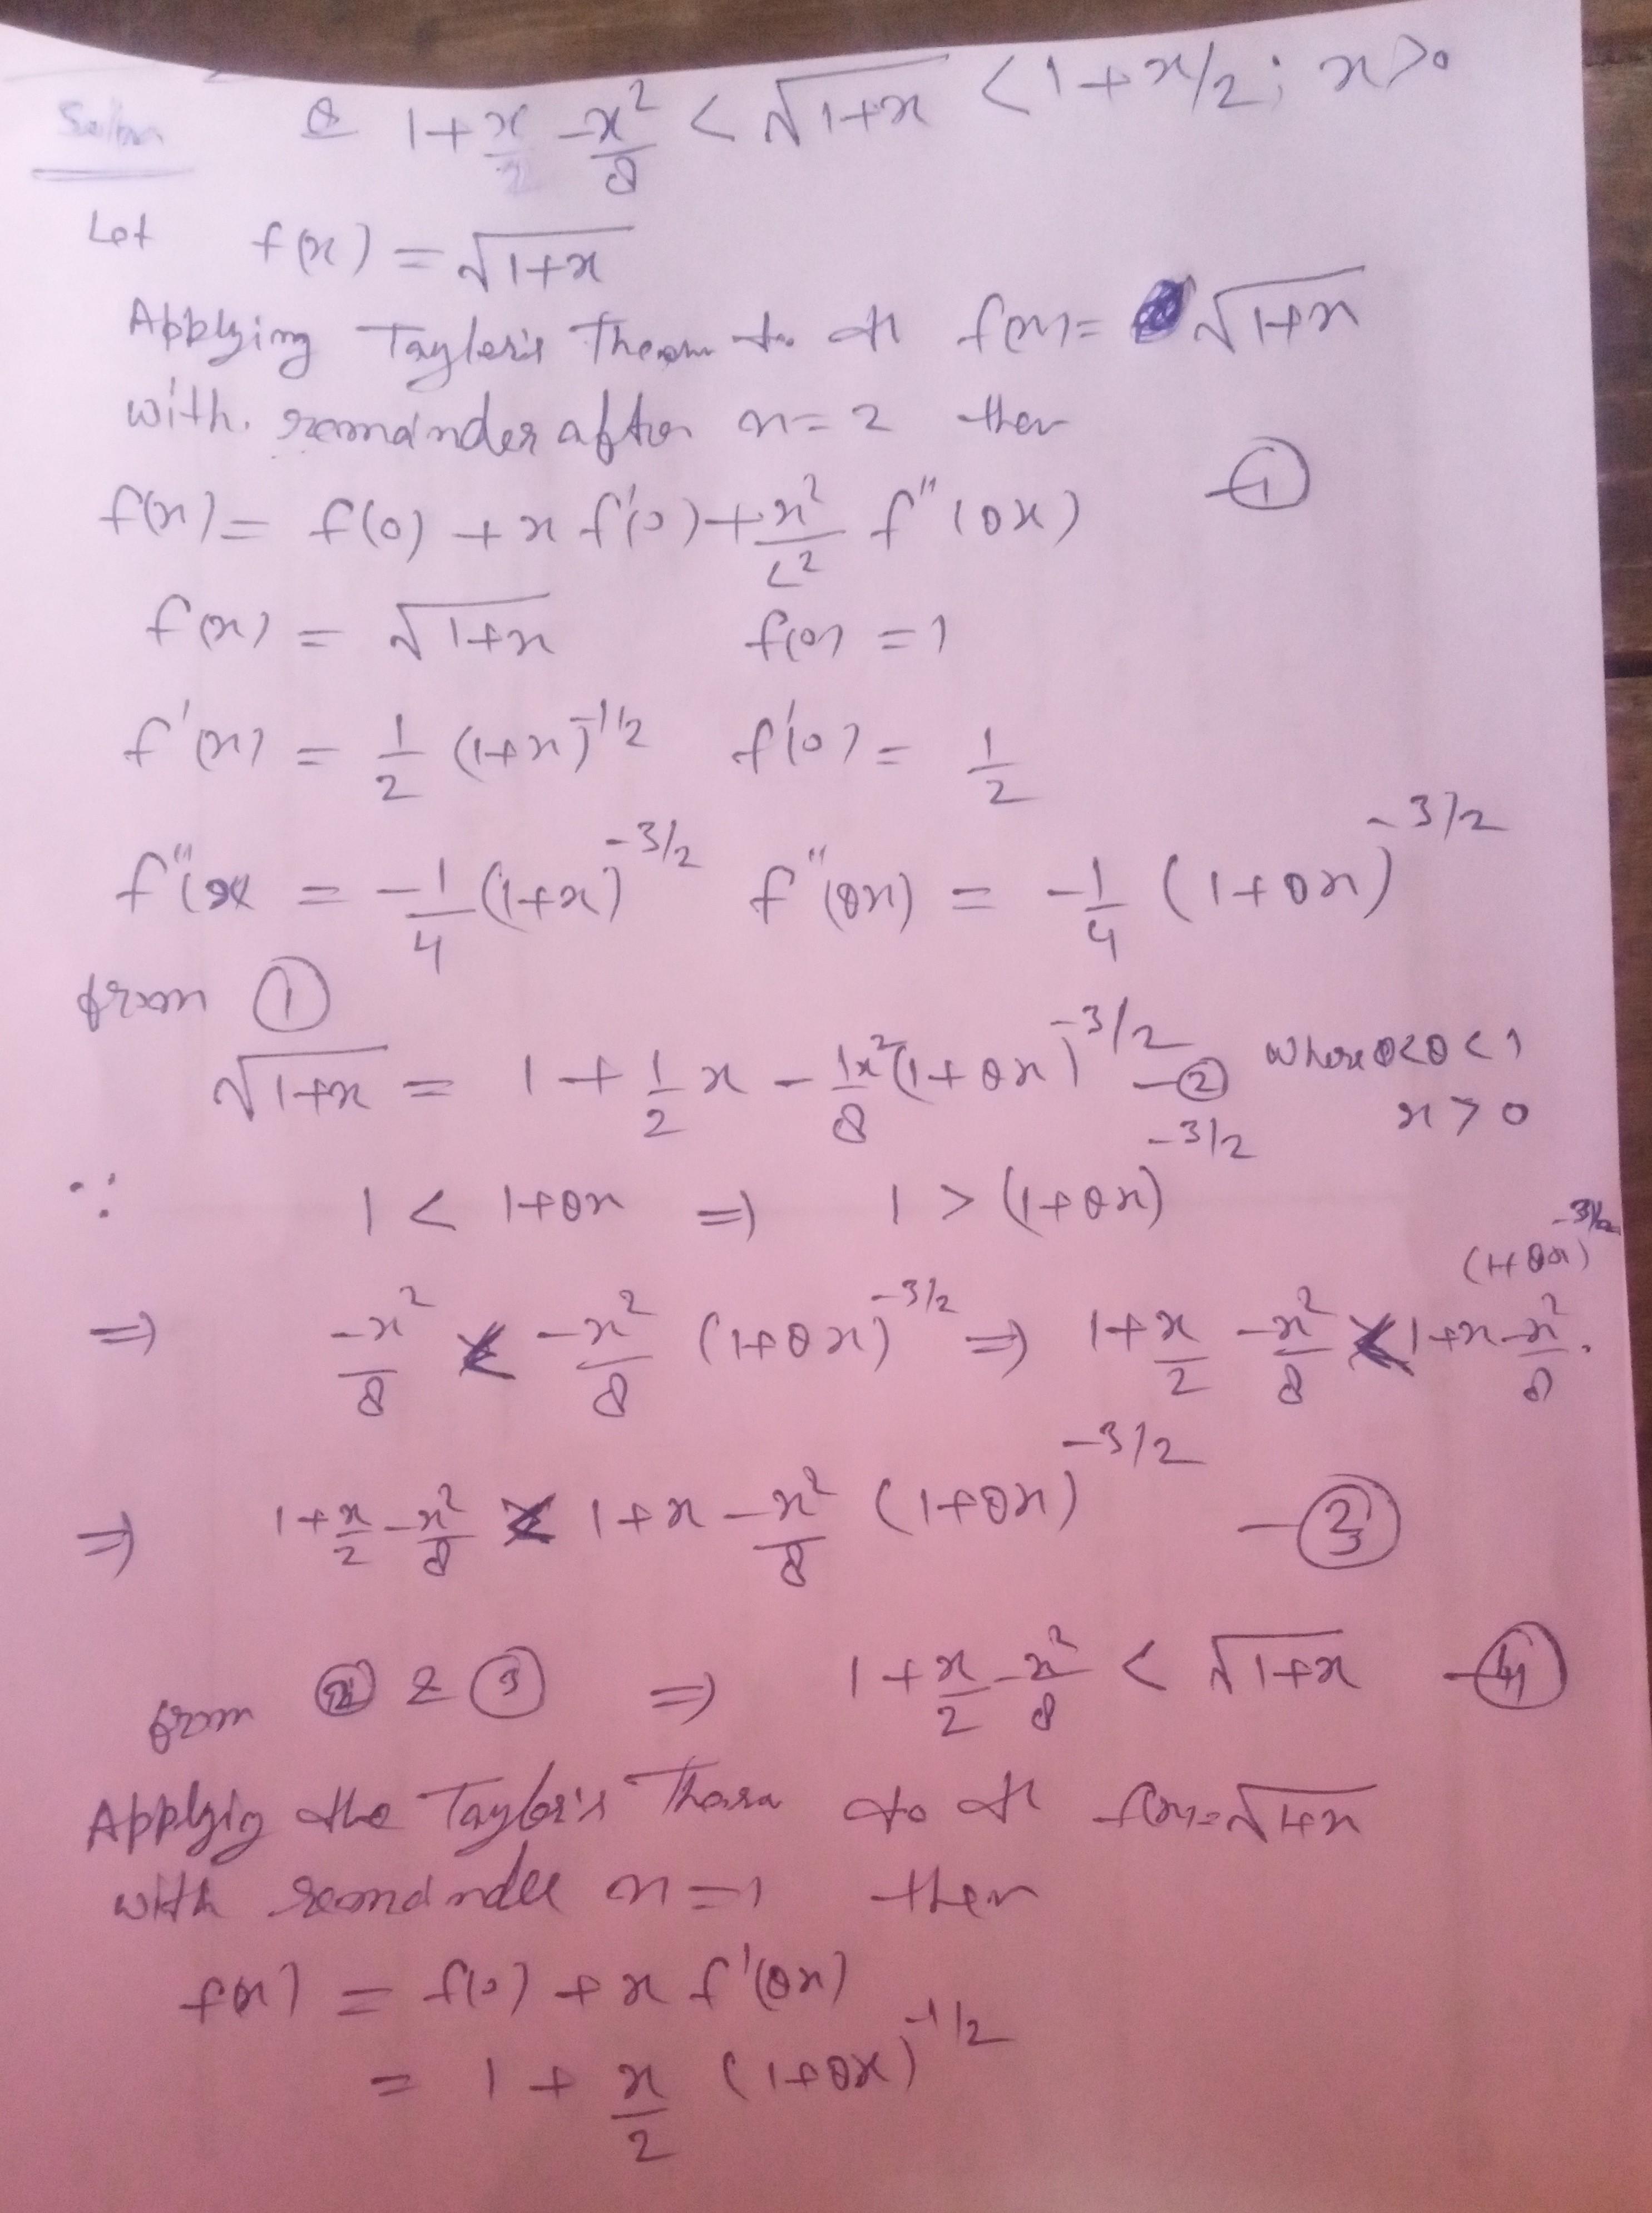 Q 1+x/2 -x²/8 < √1+x < 1+x/2; x>0
Let f(x) = √1+x
Applying Taylor's to f(x)= √1+x
with remainder after n=2 then
f(x) = f(0) + x f'(0) + x²/∠2 f''(θx) —①
f(x) = √1+x f(0) = 1
f'(x) = 1/2 (1+x)^-1/2 f'(0) = 1/2
f''(x = -1/4 (1+x)^-3/2 f''(θx) = -1/4 (1+θx)^-3/2
from ①
√1+x = 1 + 1/2 x - 1x²/8 (1+θx)^-3/2 —② where 0<θ<1
x>0
∵ 1 < 1+θx ⇒ 1 > (1+θx)^-3/2
⇒ -x²/8 < -x²/8 (1+θx)^-3/2 ⇒ 1+x/2 -x²/8 < 1+x-x²/8 . (1+θx)^-3/2
⇒ 1+x/2 -x²/8 < 1+x -x²/8 (1+θx)^-3/2 —③
from ② & ③ ⇒ 1+x/2 -x²/8 < √1+x —④
the Taylor's to f(x)=√1+x
with n=1 then
f(x) = f(0) + x f'(θx)
= 1 + x/2 (1+θx)^-1/2